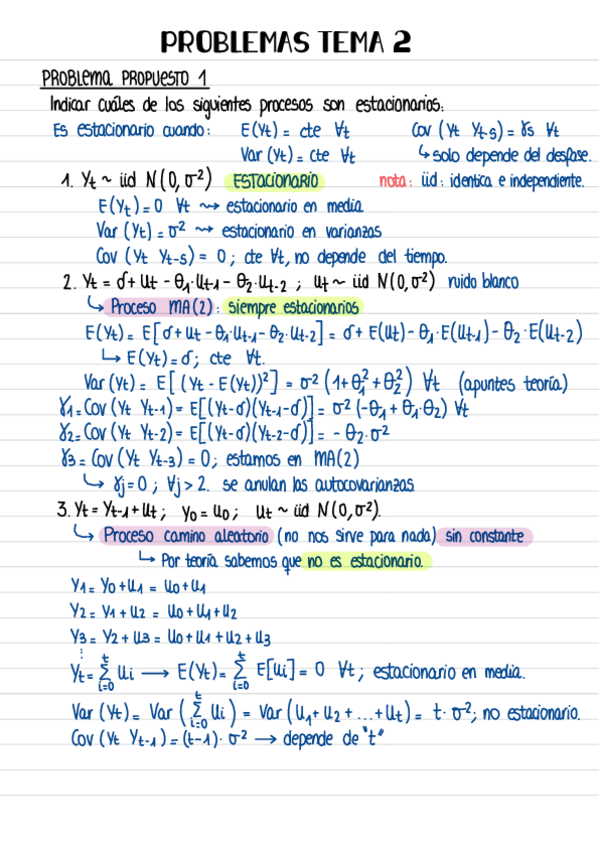 PROBLEMAS TEMA 2
PROBLEMA PROPUESTO 1
Indicar cuáles de los siguientes procesos son estacionarios:
Es estacionario cuando: E(Yt) = cte ∀t Cov (Yt Yt-s) = γs ∀t
Var (Yt) = cte ∀t ↳ solo depende del desfase.
1. Yt ~ iid N(0, σ²) ESTACIONARIO nota: iid: identica e independiente.
E(Yt) = 0 ∀t ⇝ estacionario en media
Var (Yt) = σ² ⇝ estacionario en varianzas
Cov (Yt Yt-s) = 0; cte ∀t, no depende del tiempo.
2. Yt = δ + Ut - θ1·Ut-1 - θ2·Ut-2 ; Ut ~ iid N(0, σ²) ruido blanco
↳ Proceso MA(2): siempre estacionarios
E(Yt) = E[δ + Ut - θ1·Ut-1 - θ2·Ut-2] = δ + E(Ut) - θ1·E(Ut-1) - θ2·E(Ut-2)
↳ E(Yt) = δ; cte ∀t.
Var (Yt) = E[(Yt - E(Yt))²] = σ² (1 + θ1² + θ2²) ∀t (apuntes teoría)
γ1 = Cov (Yt Yt-1) = E[(Yt-δ)(Yt-1-δ)] = σ² (-θ1 + θ1·θ2) ∀t
γ2 = Cov (Yt Yt-2) = E[(Yt-δ)(Yt-2-δ)] = - θ2·σ²
γ3 = Cov (Yt Yt-3) = 0; estamos en MA(2)
↳ γj = 0; ∀j > 2. se anulan las autocovarianzas
3. Yt = Yt-1 + Ut ; Y0 = U0 ; Ut ~ iid N(0, σ²).
↳ Proceso camino aleatorio (no nos sirve para nada) sin constante
↳ Por teoría sabemos que no es estacionario.
Y1 = Y0 + U1 = U0 + U1
Y2 = Y1 + U2 = U0 + U1 + U2
Y3 = Y2 + U3 = U0 + U1 + U2 + U3
⋮
Yt = Σ(i=0, t) Ui → E(Yt) = Σ(i=0, t) E[Ui] = 0 ∀t ; estacionario en media.
Var (Yt) = Var (Σ(i=0, t) Ui) = Var (U1 + U2 + ... + Ut) = t·σ²; no estacionario.
Cov (Yt Yt-1) = (t-1)·σ² → depende de "t"